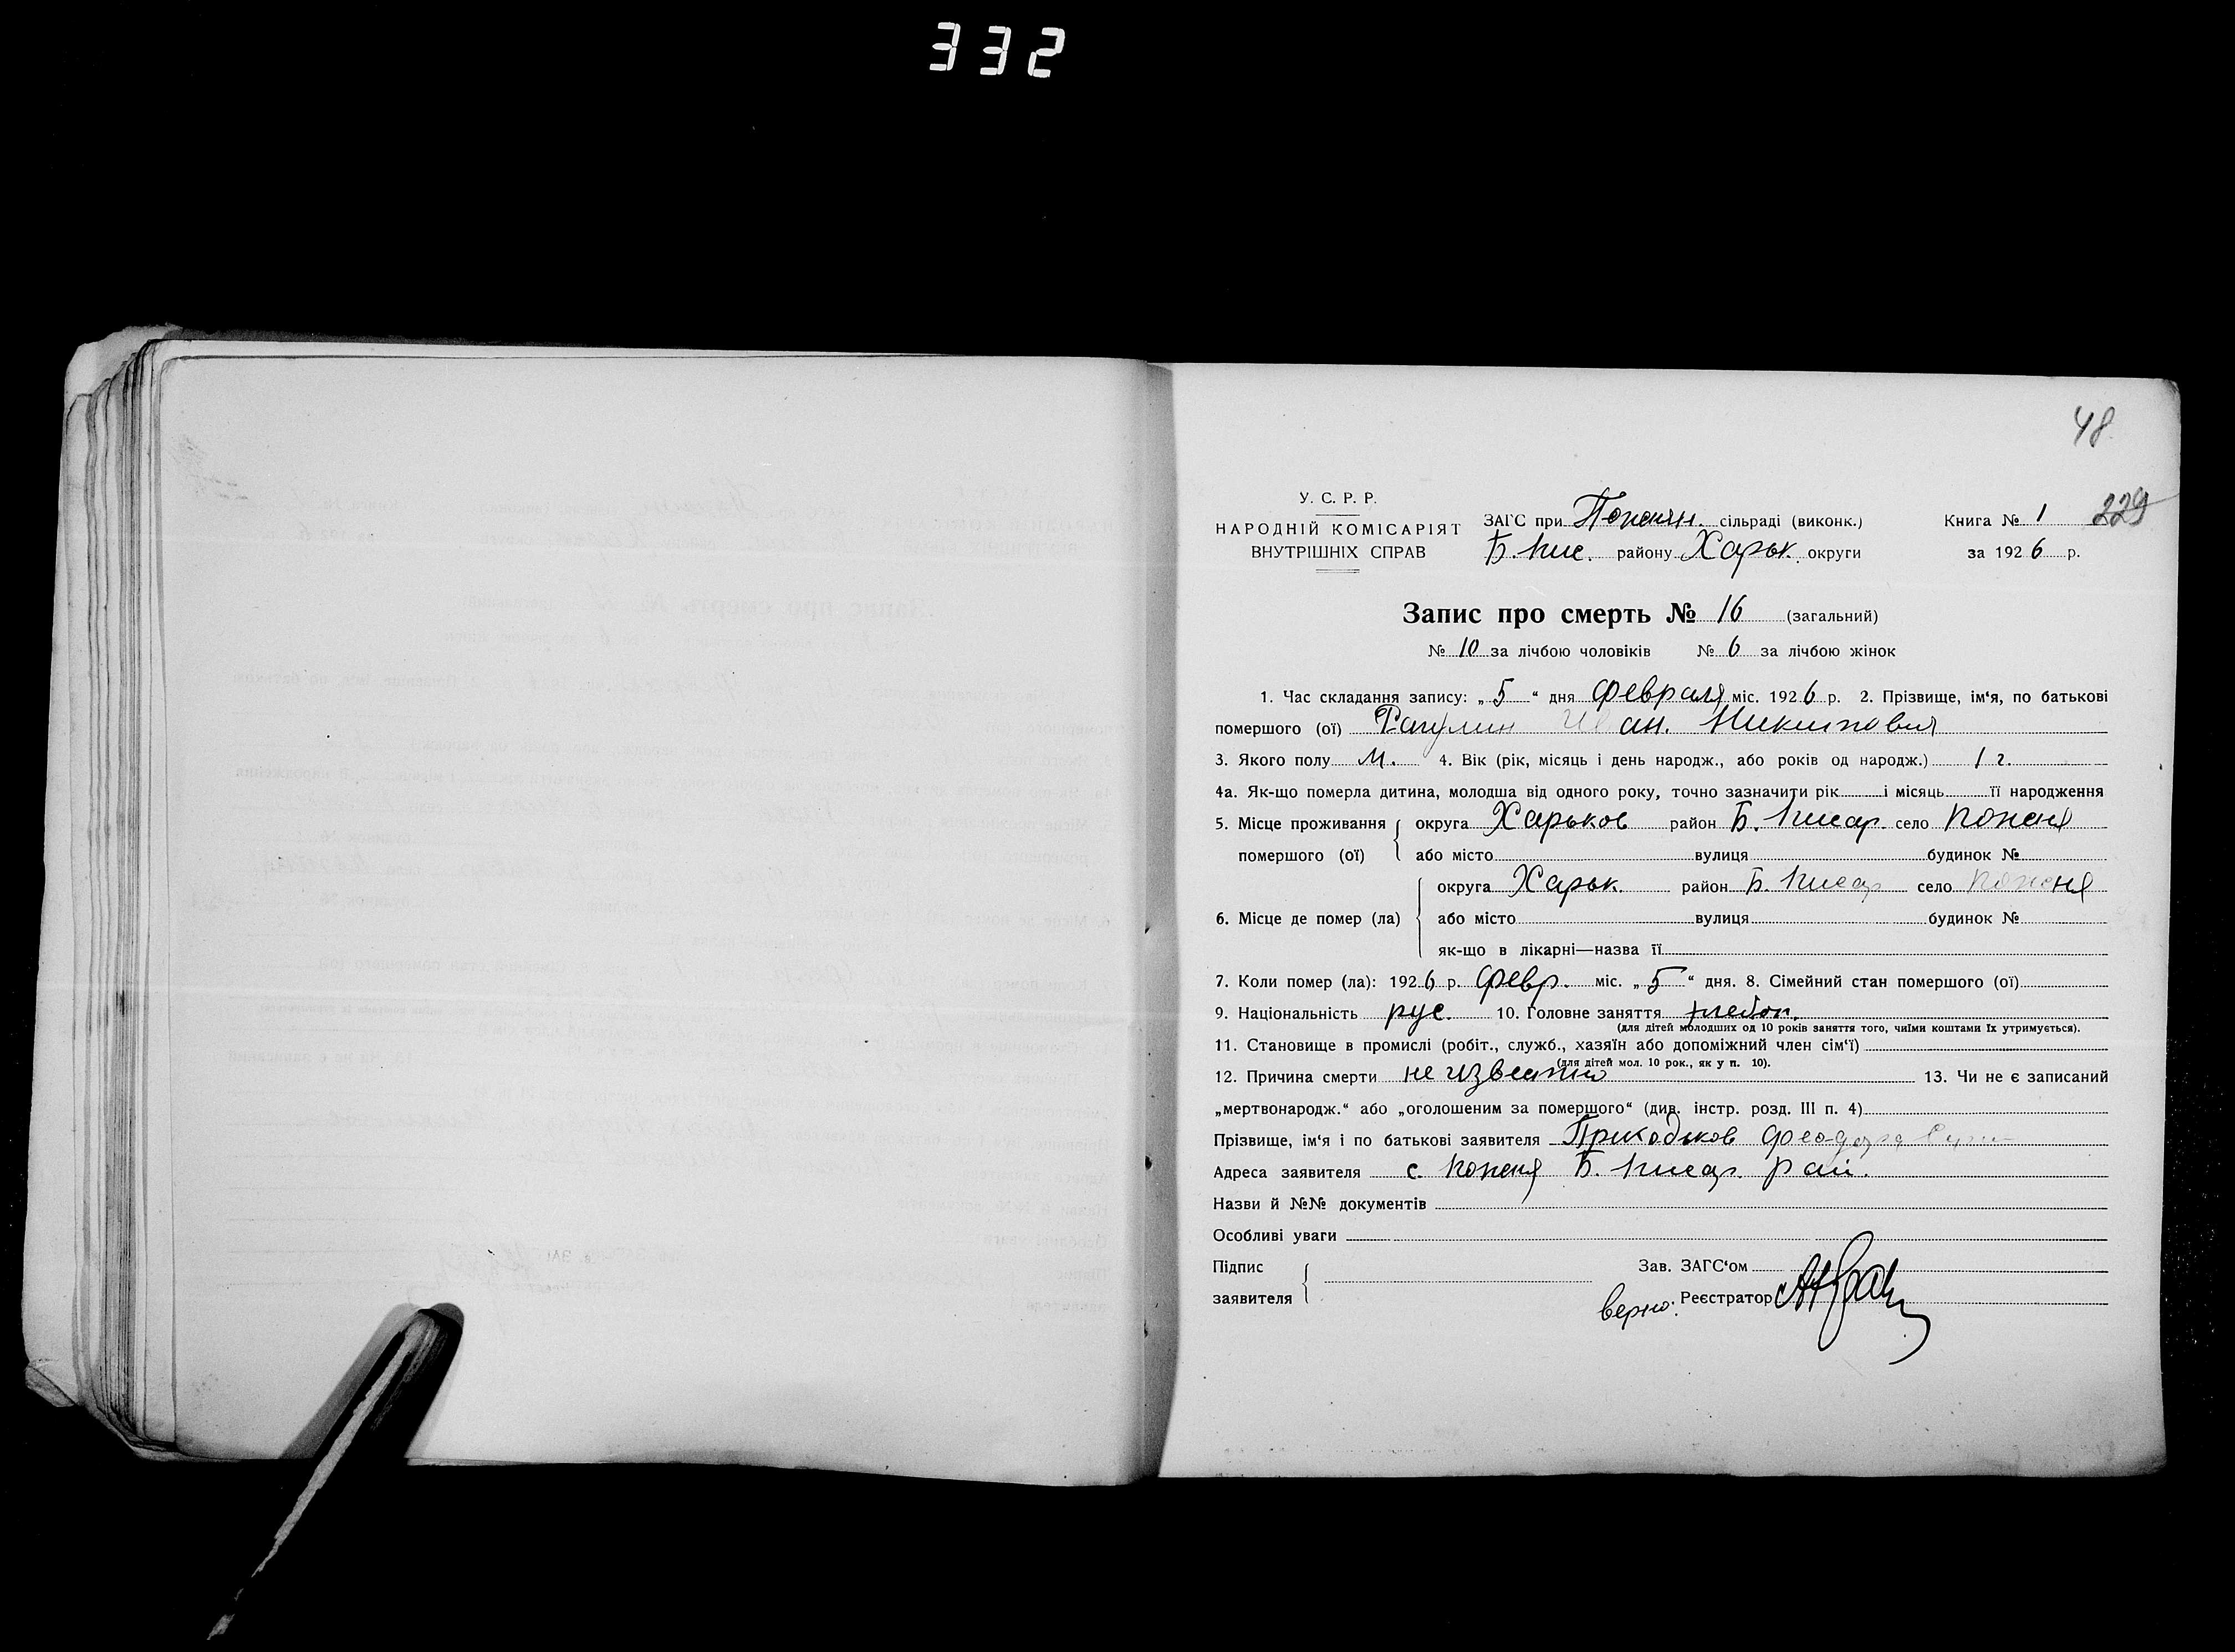 332
48
У. С. Р. Р.
НАРОДНІЙ КОМІСАРІЯТ
ВНУТРІШНІХ СПРАВ
ЗАГС при сільраді (виконк.)
Б. Пис. району Харьк. округи
Книга № 1 229
за 1926 р.
Запис про смерть № 16 (загальний)
№ 10 за лічбою чоловіків № 6 за лічбою жінок
1. Час складання запису: „5“ дня февраля міс. 1926 р. 2. Прізвище, ім‘я, по батькові
помершого (ої) Рагулин Иван. Никитович
3. Якого полу М. 4. Вік (рік, місяць і день народж., або років од народж.) 1 г.
4а. Як-що померла дитина, молодша від одного року, точно зазначити рік і місяць її народження
5. Місце проживання помершого (ої)
округа Харьков район Б. Писар. село
або місто вулиця будинок №
6. Місце де помер (ла)
округа Харьк. район Б. Писар село
або місто вулиця будинок №
як-що в лікарні—назва її
7. Коли помер (ла): 1926 р. февр. міс. „5“ дня. 8. Сімейний стан помершого (ої)
9. Національність рус. 10. Головне заняття хлебоп.
(для дітей молодших од 10 років заняття того, чиїми коштами їх утримується).
11. Становище в промислі (робіт., служб., хазяїн або допоміжний член сім‘ї)
(для дітей мол. 10 рок., як у п. 10).
12. Причина смерти не известно 13. Чи не є записаний
„мертвонародж.“ або „оголошеним за помершого“ (див. інстр. розд. III п. 4)
Прізвище, ім‘я і по батькові заявителя Приходьков
Адреса заявителя с. Б. Писар. рай.
Назви й №№ документів
Особливі уваги
Підпис
заявителя
Зав. ЗАГС‘ом
верно: Реєстратор